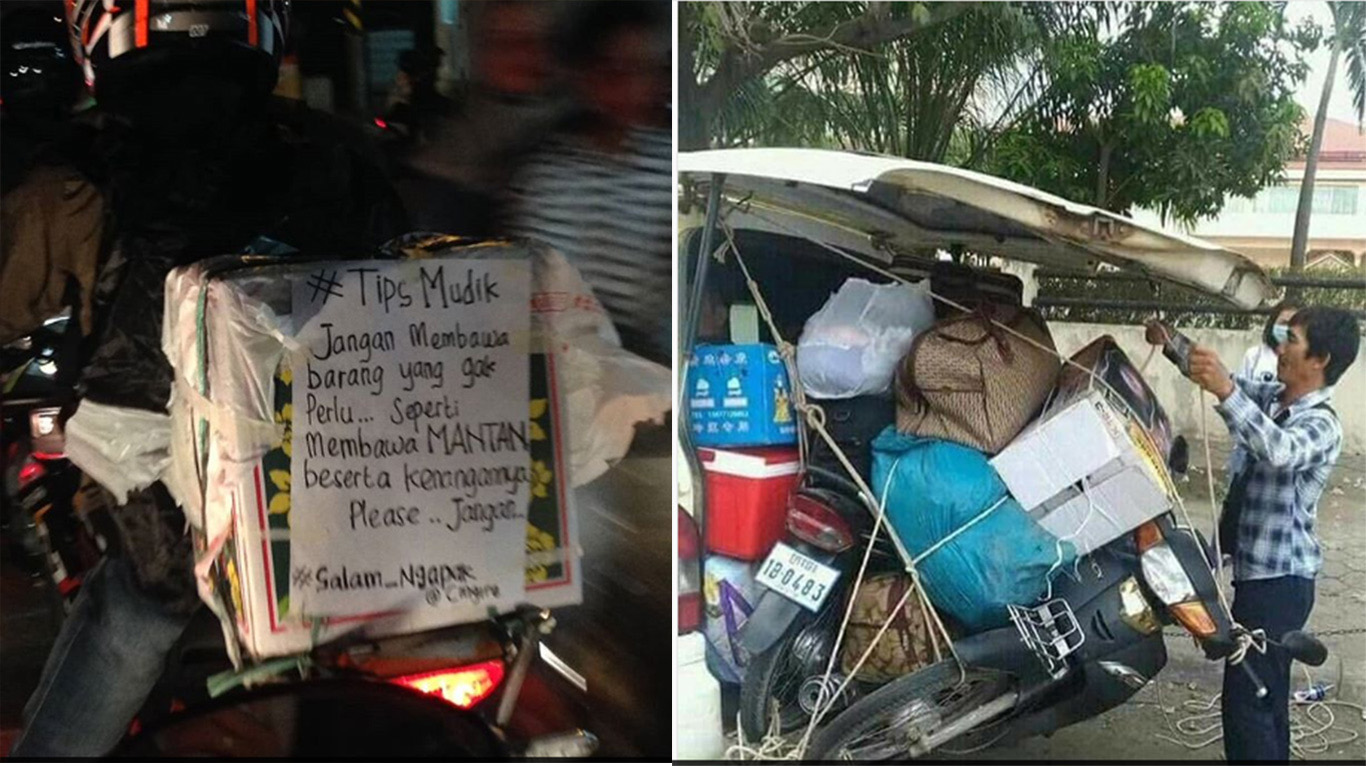 # Tips Mudik
Jangan Membawa
barang yang gak
Perlu... Seperti
Membawa MANTAN
beserta kenangannya
Please .. Jangan..
# Salam_Ngapak
1B·0483